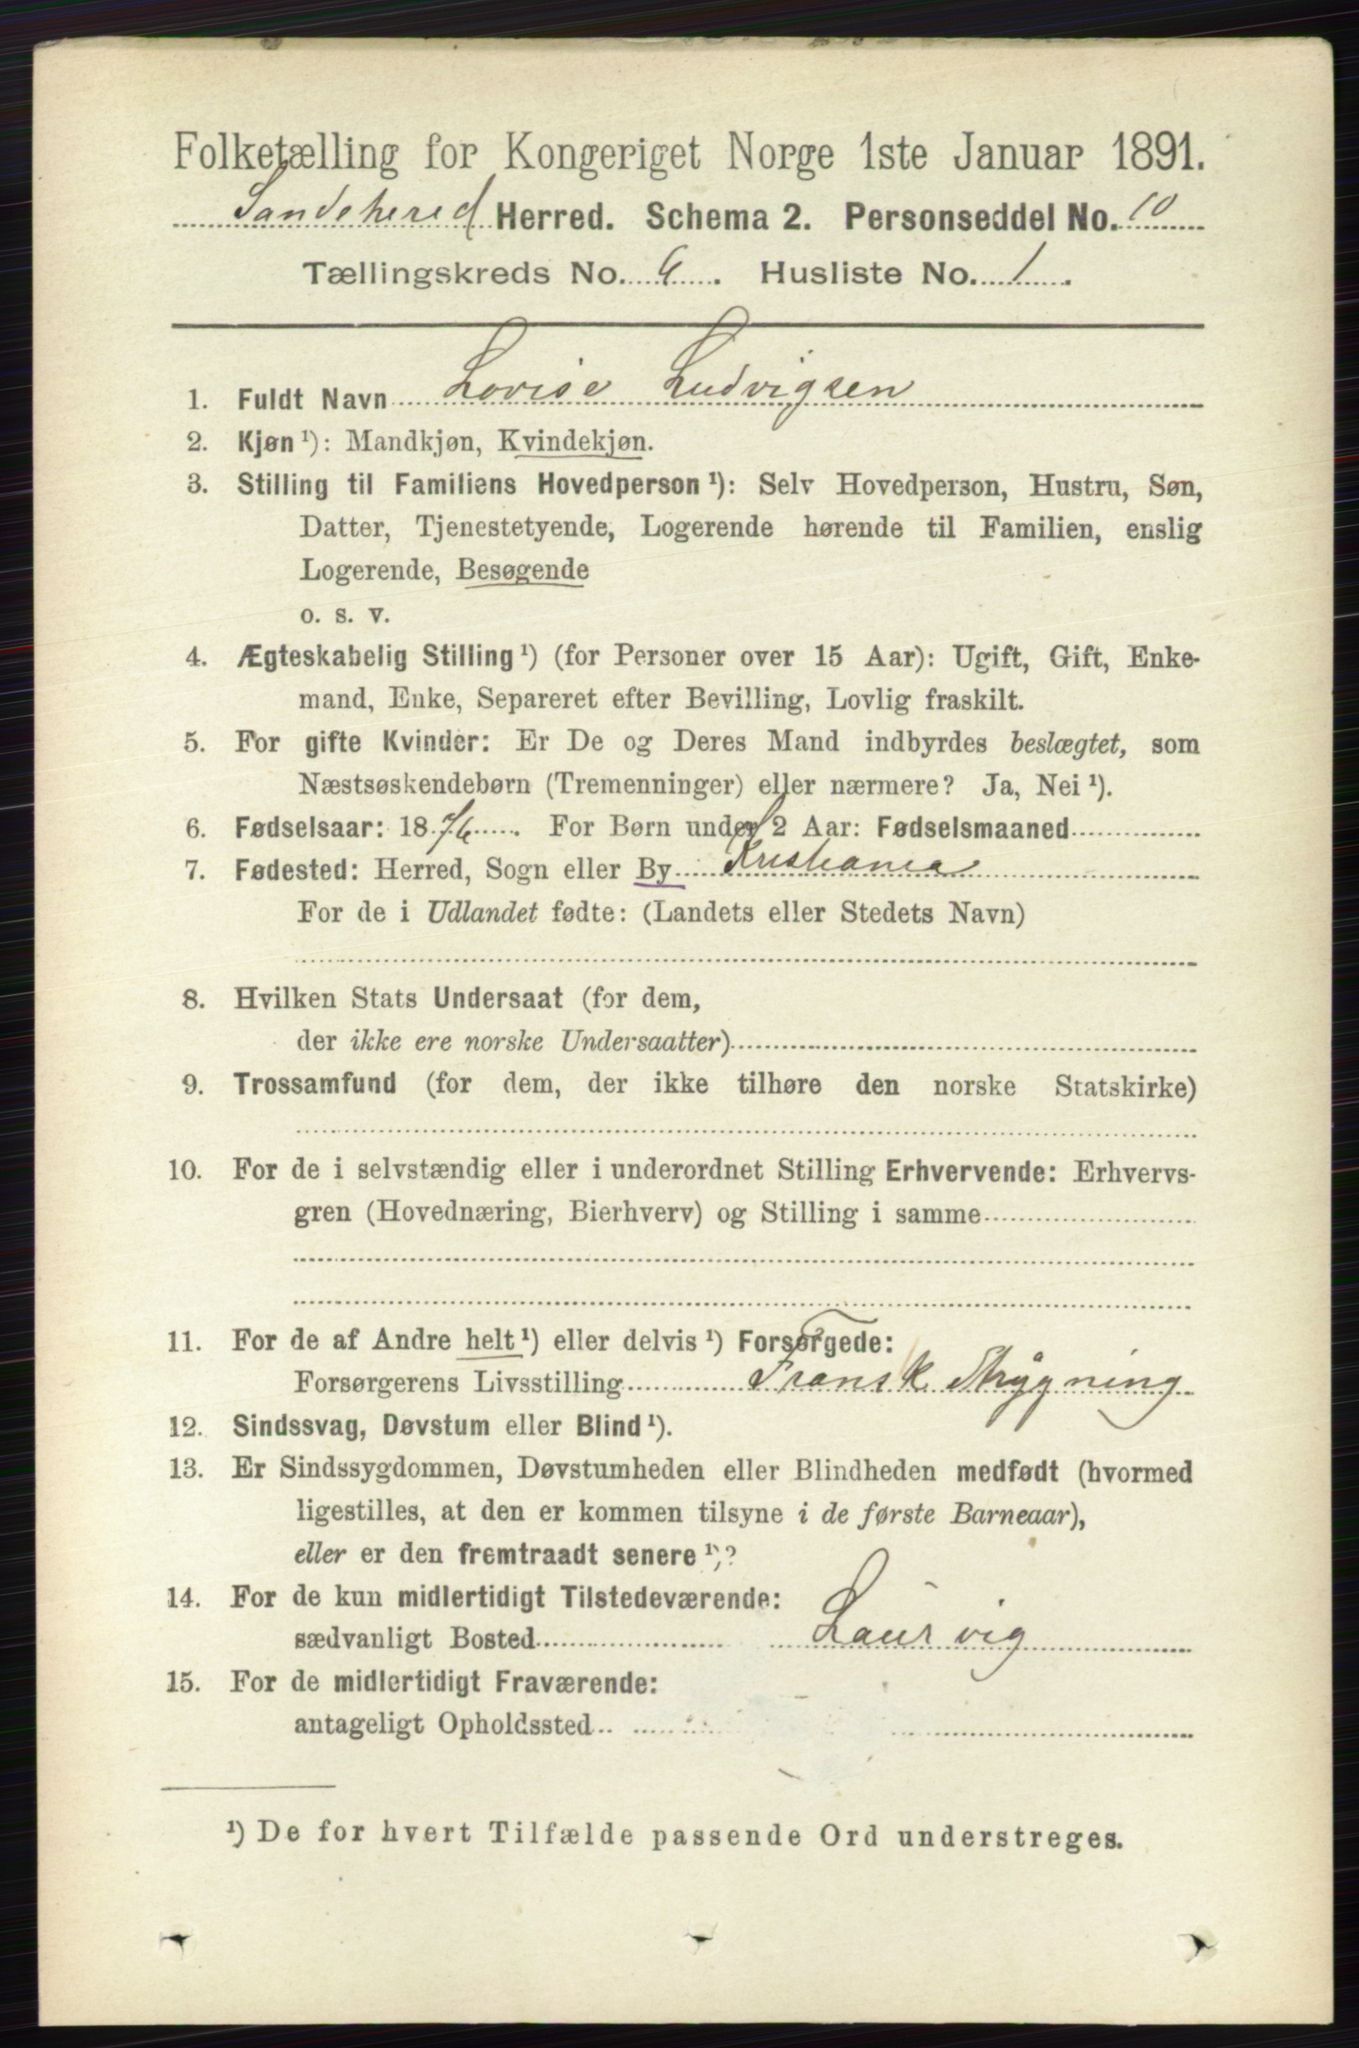 Folketælling for Kongeriget Norge 1ste Januar 1891.
Sandeherred Herred. Schema 2. Personseddel No. 10
Tællingskreds No. 6. Husliste No. 1.
1. Fuldt Navn Lovise Ludvigsen
2. Kjøn ¹): Mandkjøn, Kvindekjøn.
3. Stilling til Familiens Hovedperson ¹): Selv Hovedperson, Hustru, Søn,
Datter, Tjenestetyende, Logerende hørende til Familien, enslig
Logerende, Besøgende
o. s. v.
4. Ægteskabelig Stilling ¹) (for Personer over 15 Aar): Ugift, Gift, Enke-
mand, Enke, Separeret efter Bevilling, Lovlig fraskilt.
5. For gifte Kvinder: Er De og Deres Mand indbyrdes beslægtet, som
Næstsøskendebørn (Tremenninger) eller nærmere? Ja, Nei ¹).
6. Fødselsaar: 1876. For Børn under 2 Aar: Fødselsmaaned
7. Fødested: Herred, Sogn eller By Kristiania
For de i Udlandet fødte: (Landets eller Stedets Navn)
8. Hvilken Stats Undersaat (for dem,
der ikke ere norske Undersaatter)
9. Trossamfund (for dem, der ikke tilhøre den norske Statskirke)
10. For de i selvstændig eller i underordnet Stilling Erhvervende: Erhvervs-
gren (Hovednæring, Bierhverv) og Stilling i samme
11. For de af Andre helt ¹) eller delvis ¹) Forsørgede:
Forsørgerens Livsstilling Fransk Strygning
12. Sindssvag, Døvstum eller Blind ¹).
13. Er Sindssygdommen, Døvstumheden eller Blindheden medfødt (hvormed
ligestilles, at den er kommen tilsyne i de første Barneaar),
eller er den fremtraadt senere ¹)?
14. For de kun midlertidigt Tilstedeværende:
sædvanligt Bosted Laurvig
15. For de midlertidigt Fraværende:
antageligt Opholdssted
¹) De for hvert Tilfælde passende Ord understreges.